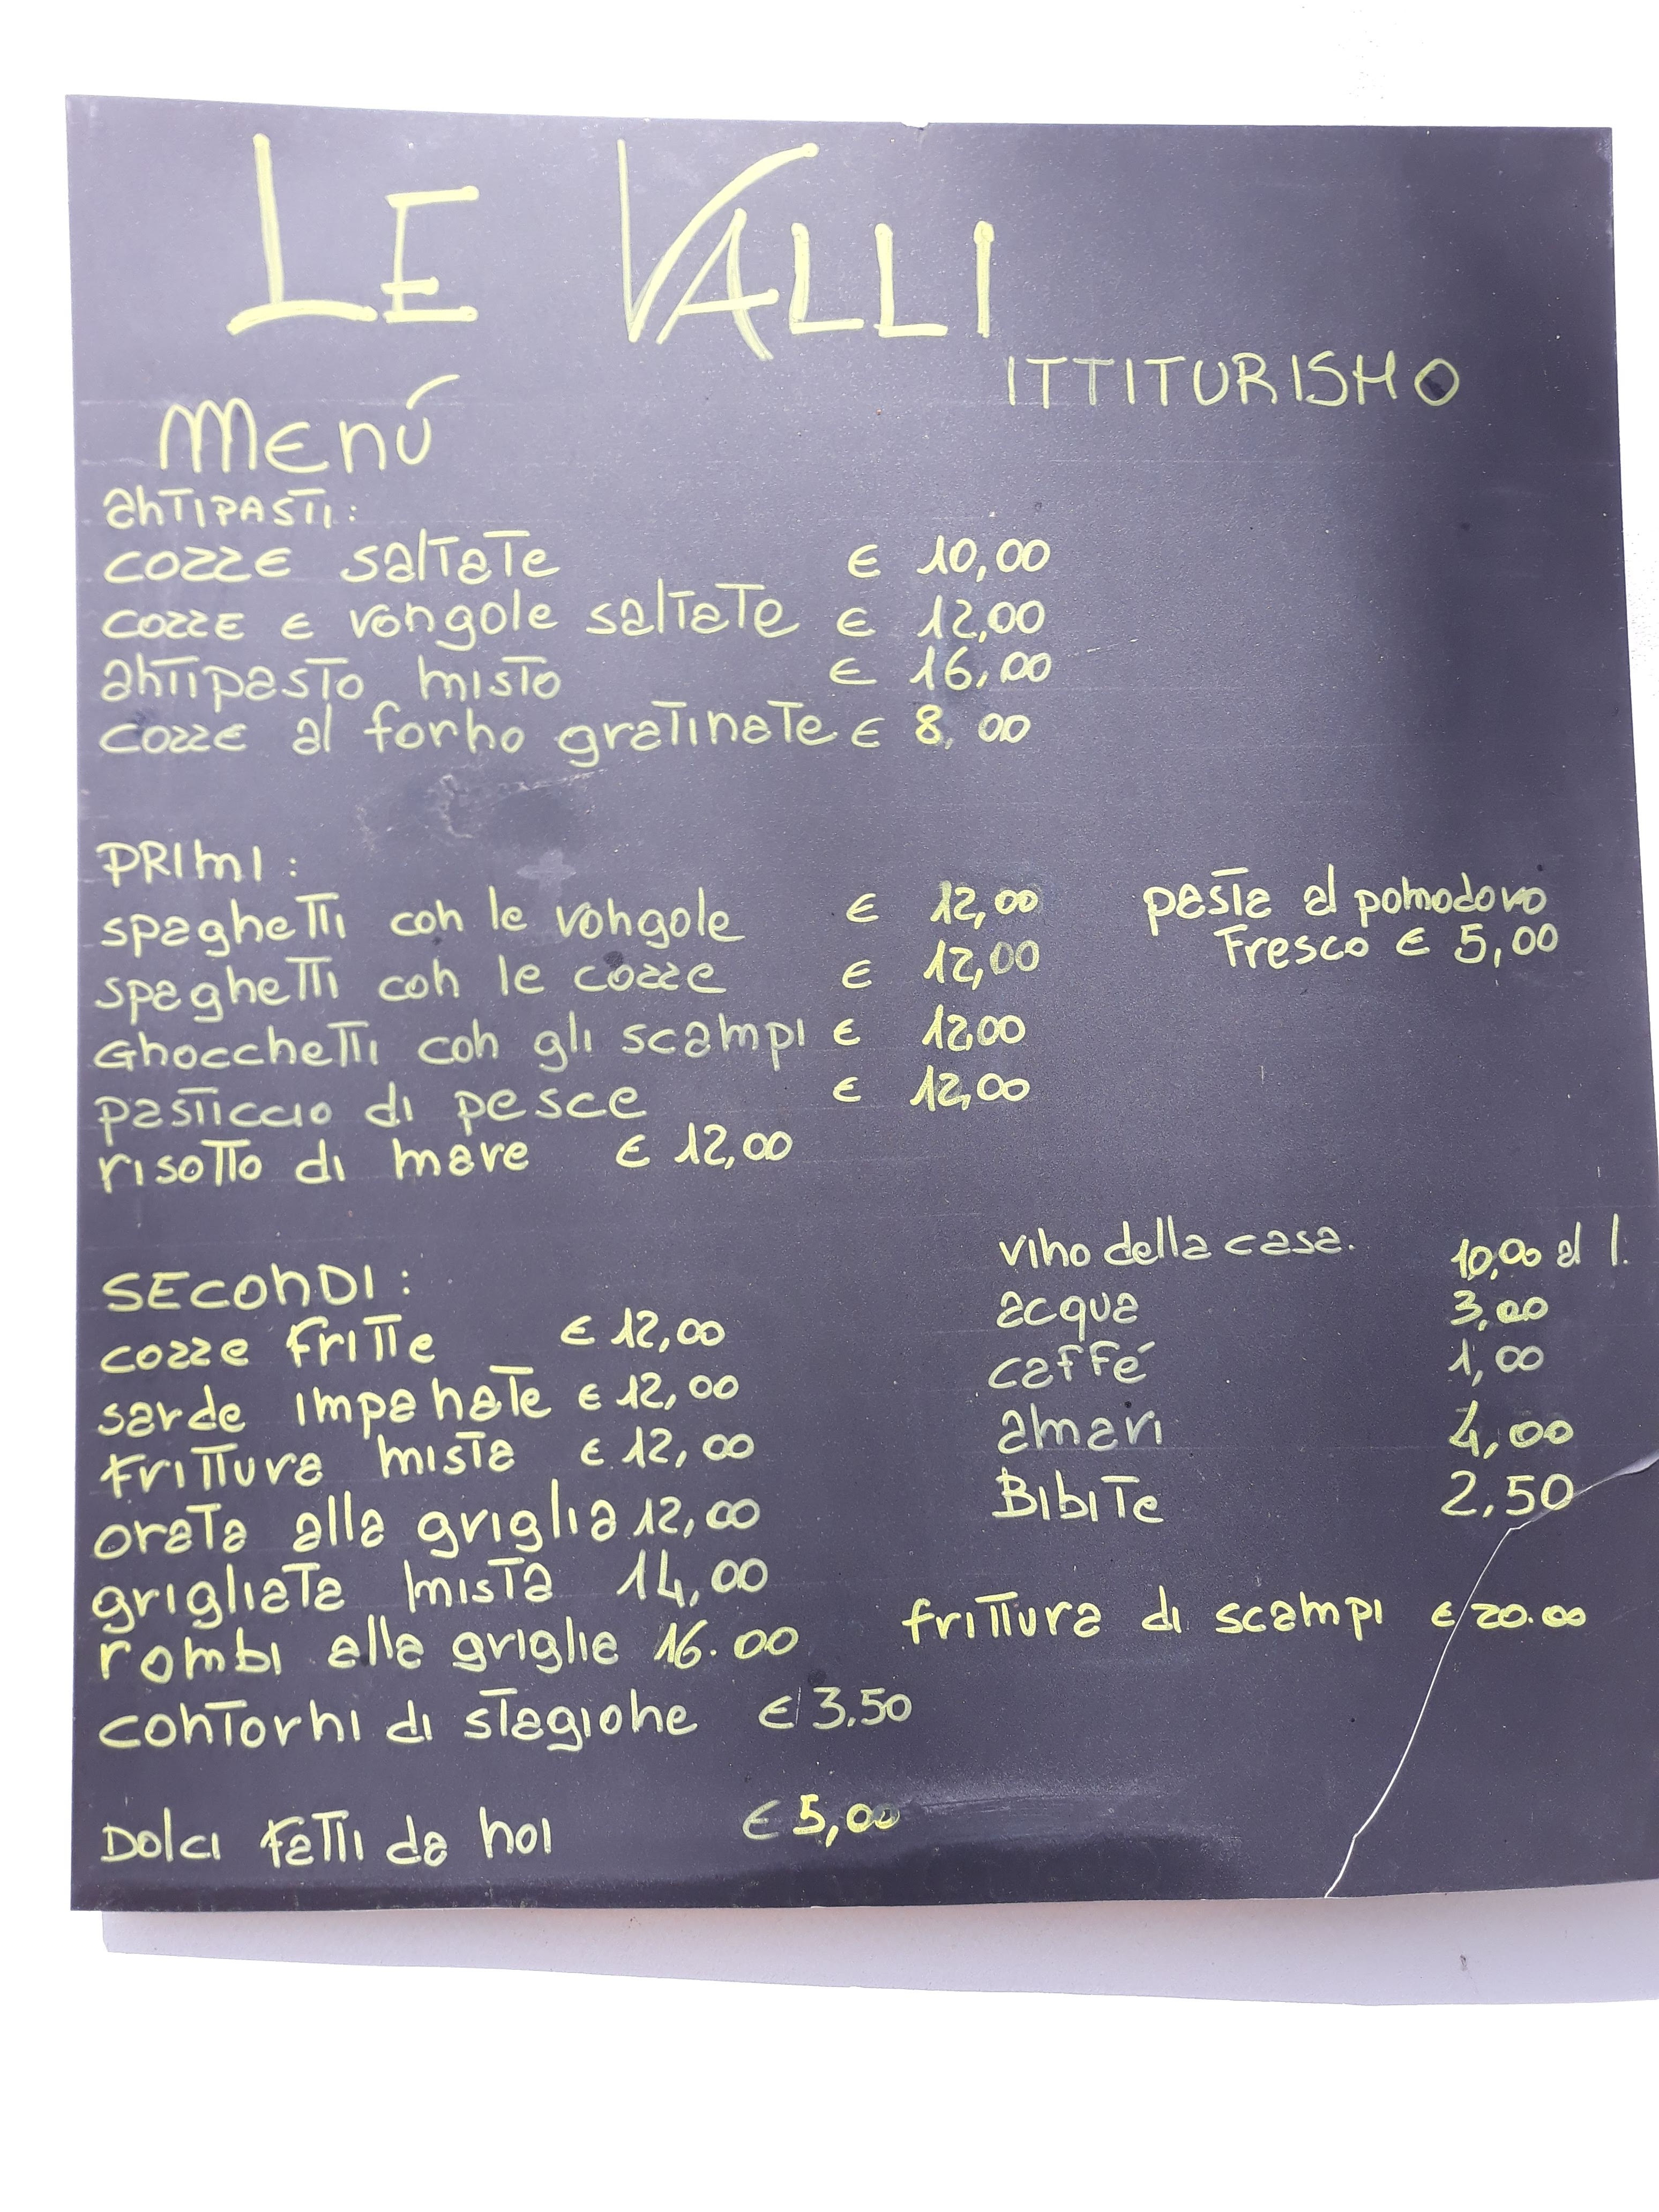 LE VALLI
ITTITURISMO
Menú
antipasti:
cozze saltate € 10,00
cozze e vongole saltate € 12,00
antipasto misto € 16,00
cozze al forno gratinate € 8,00
PRIMI:
spaghetti con le vongole € 12,00
spaghetti con le cozze € 12,00
Gnocchetti con gli scampi € 12,00
pasticcio di pesce € 12,00
risotto di mare € 12,00
pasta al pomodoro
Fresco € 5,00
SECONDI:
cozze fritte € 12,00
sarde impanate € 12,00
frittura mista € 12,00
orata alla griglia 12,00
grigliata mista 14,00
rombi alla griglia 16.00
contorni di stagione € 3.50
Dolci fatti da noi € 5,00
vino della casa. 10,00 al l.
acqua 3,00
caffé 1,00
amari 4,00
Bibite 2,50
frittura di scampi € 20.00